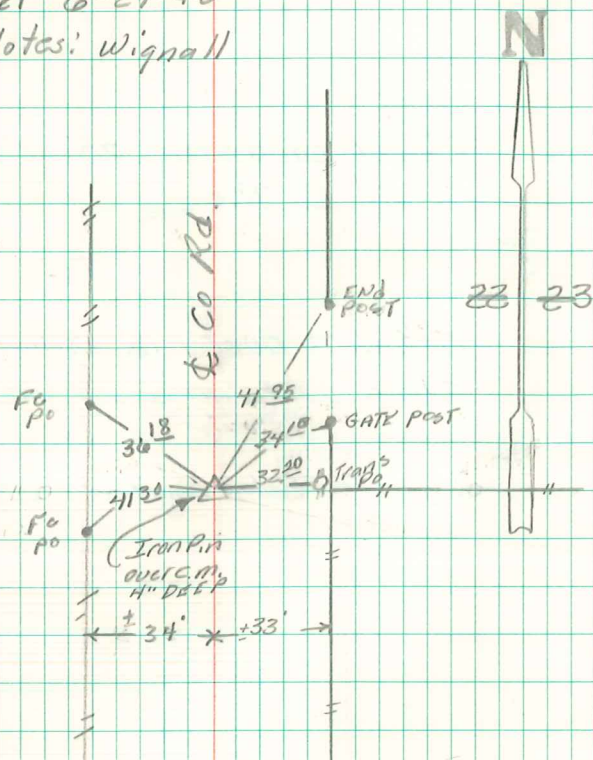 Notes: Wignall
N
℄ Co Rd.
END
POST
22 23
41 95
Fe
po
36 18
34 10
GATE POST
32 10
Trans
Po
41 30
Fe
po
Iron Pin
over c.m.
4" DEEP
± 34'
±33'